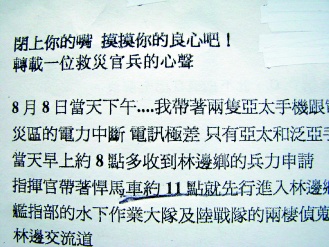 閉上你的嘴 摸摸你的良心吧！
轉載一位救災官兵的心聲
8月8日當天下午....我帶著兩隻亞太手機跟
災區的電力中斷 電訊極差 只有亞太和泛亞手
當天早上約8點多收到林邊鄉的兵力申請
指揮官帶著悍馬車約11點就先行進入林邊鄉
艦指部的水下作業大隊及陸戰隊的兩棲偵蒐
林邊交流道